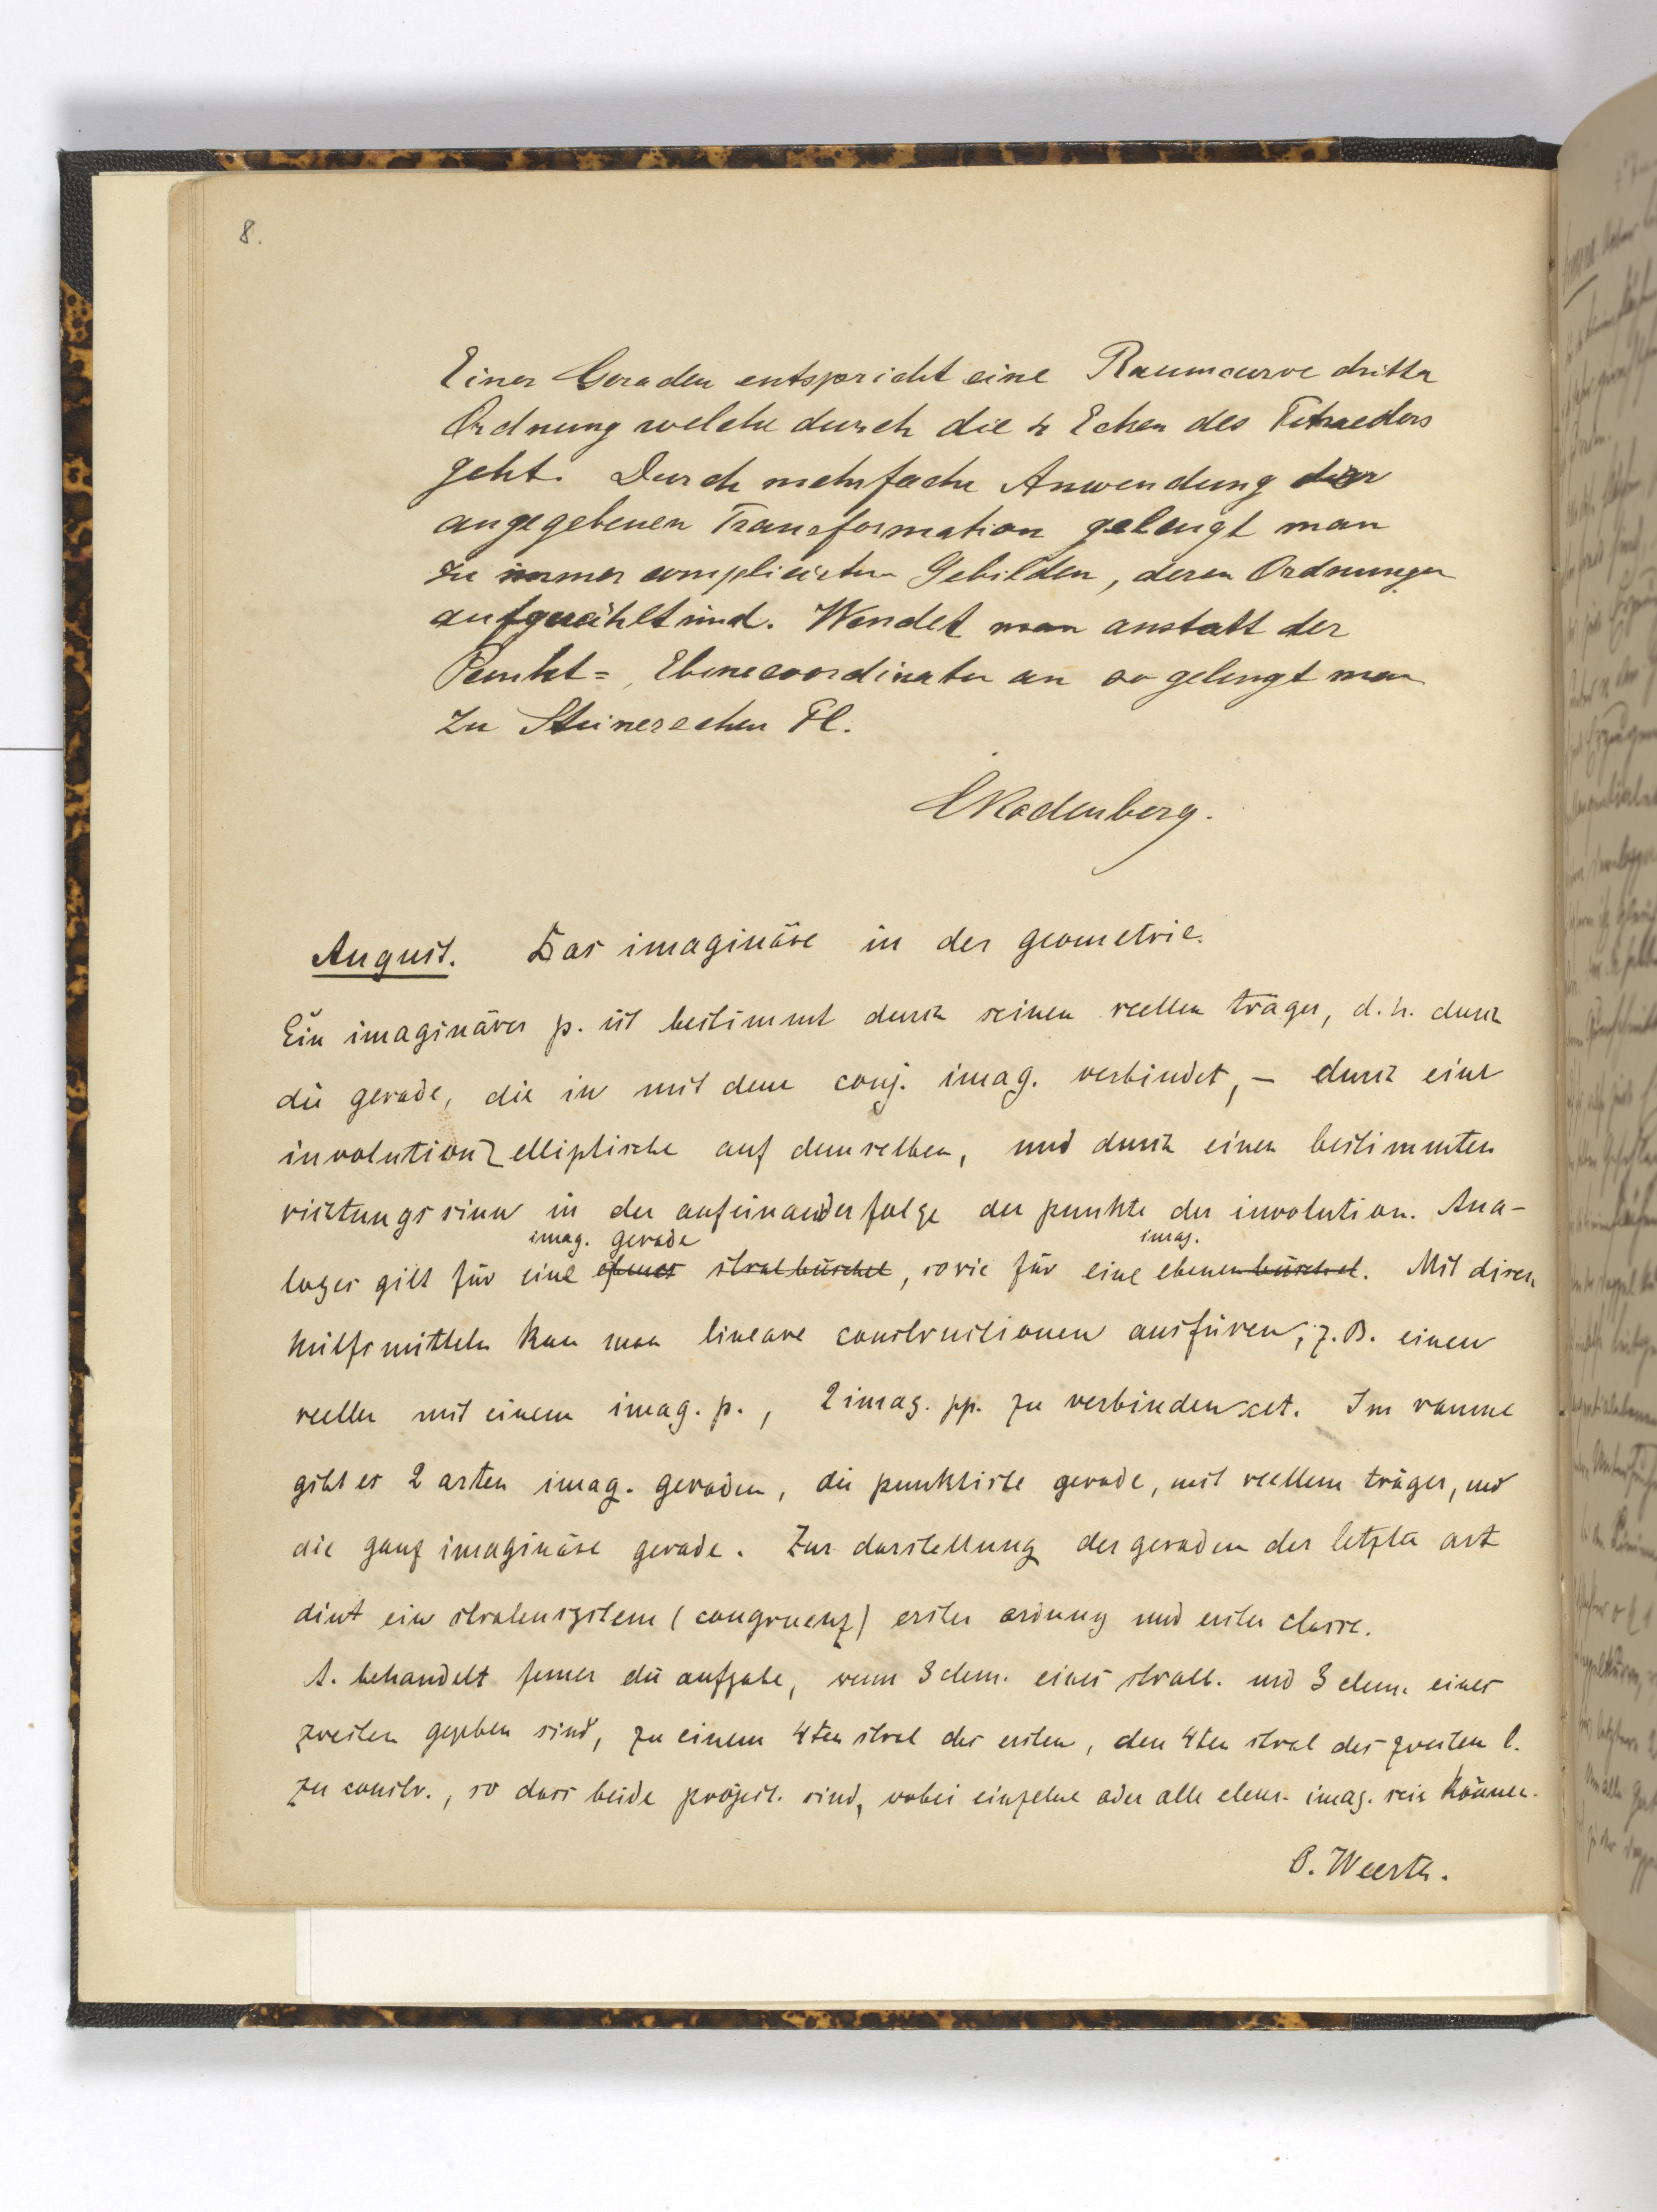 8.
Einer Geraden entspricht eine Raumcurve dritter
Ordnung welche durch die 4 Ecken des Tetraeders
geht. Durch mehrfache Anwendung der
angegebenen Transformation gelangt man
zu immer complicirten Gebilden, deren Ordnungen
aufgezählt sind. Wendet man anstatt der
Punkt=, Ebenecoordinaten an so gelangt man
zu Steinerschen Fl.
CRodenberg.
August. Das imaginäre in der geometrie.
Ein imaginärer p. ist bestimmt durch seinen reellen träger, d. h. durch
die gerade, die in mit dem conj. imag. verbindet, – durch eine
involution elliptische auf demselben, und durch einen bestimmten
richtungssinn in der aufeinanderfolge der punkte der involution. Ana-
imag. gerade imag.
loges gilt für eine ebenes stralbüschel, sowie für eine ebenenbüschel. Mit disen
hülfsmitteln kan man lineare constructionen ausfüren, z. B. einen
reellen mit einem imag. p., 2 imag. pp. zu verbinden cet. Im raume
gibt es 2 arten imag. geraden, die punktirte gerade, mit reellem träger, und
die ganz imaginäre gerade. Zur darstellung der geraden der letzten art
dint ein stralensystem (congruenz) erster ordnung und erster classe.
A. behandelt ferner die aufgabe, wenn 3 elem. eines stralb. und 3 elem. eines
zweiten gegeben sind, zu einem 4ten stral des ersten, den 4ten stral des zweiten b.
zu constr., so dass beide project. sind, wobei einzelne oder alle elem. imag. sein können.
O. Weerth.